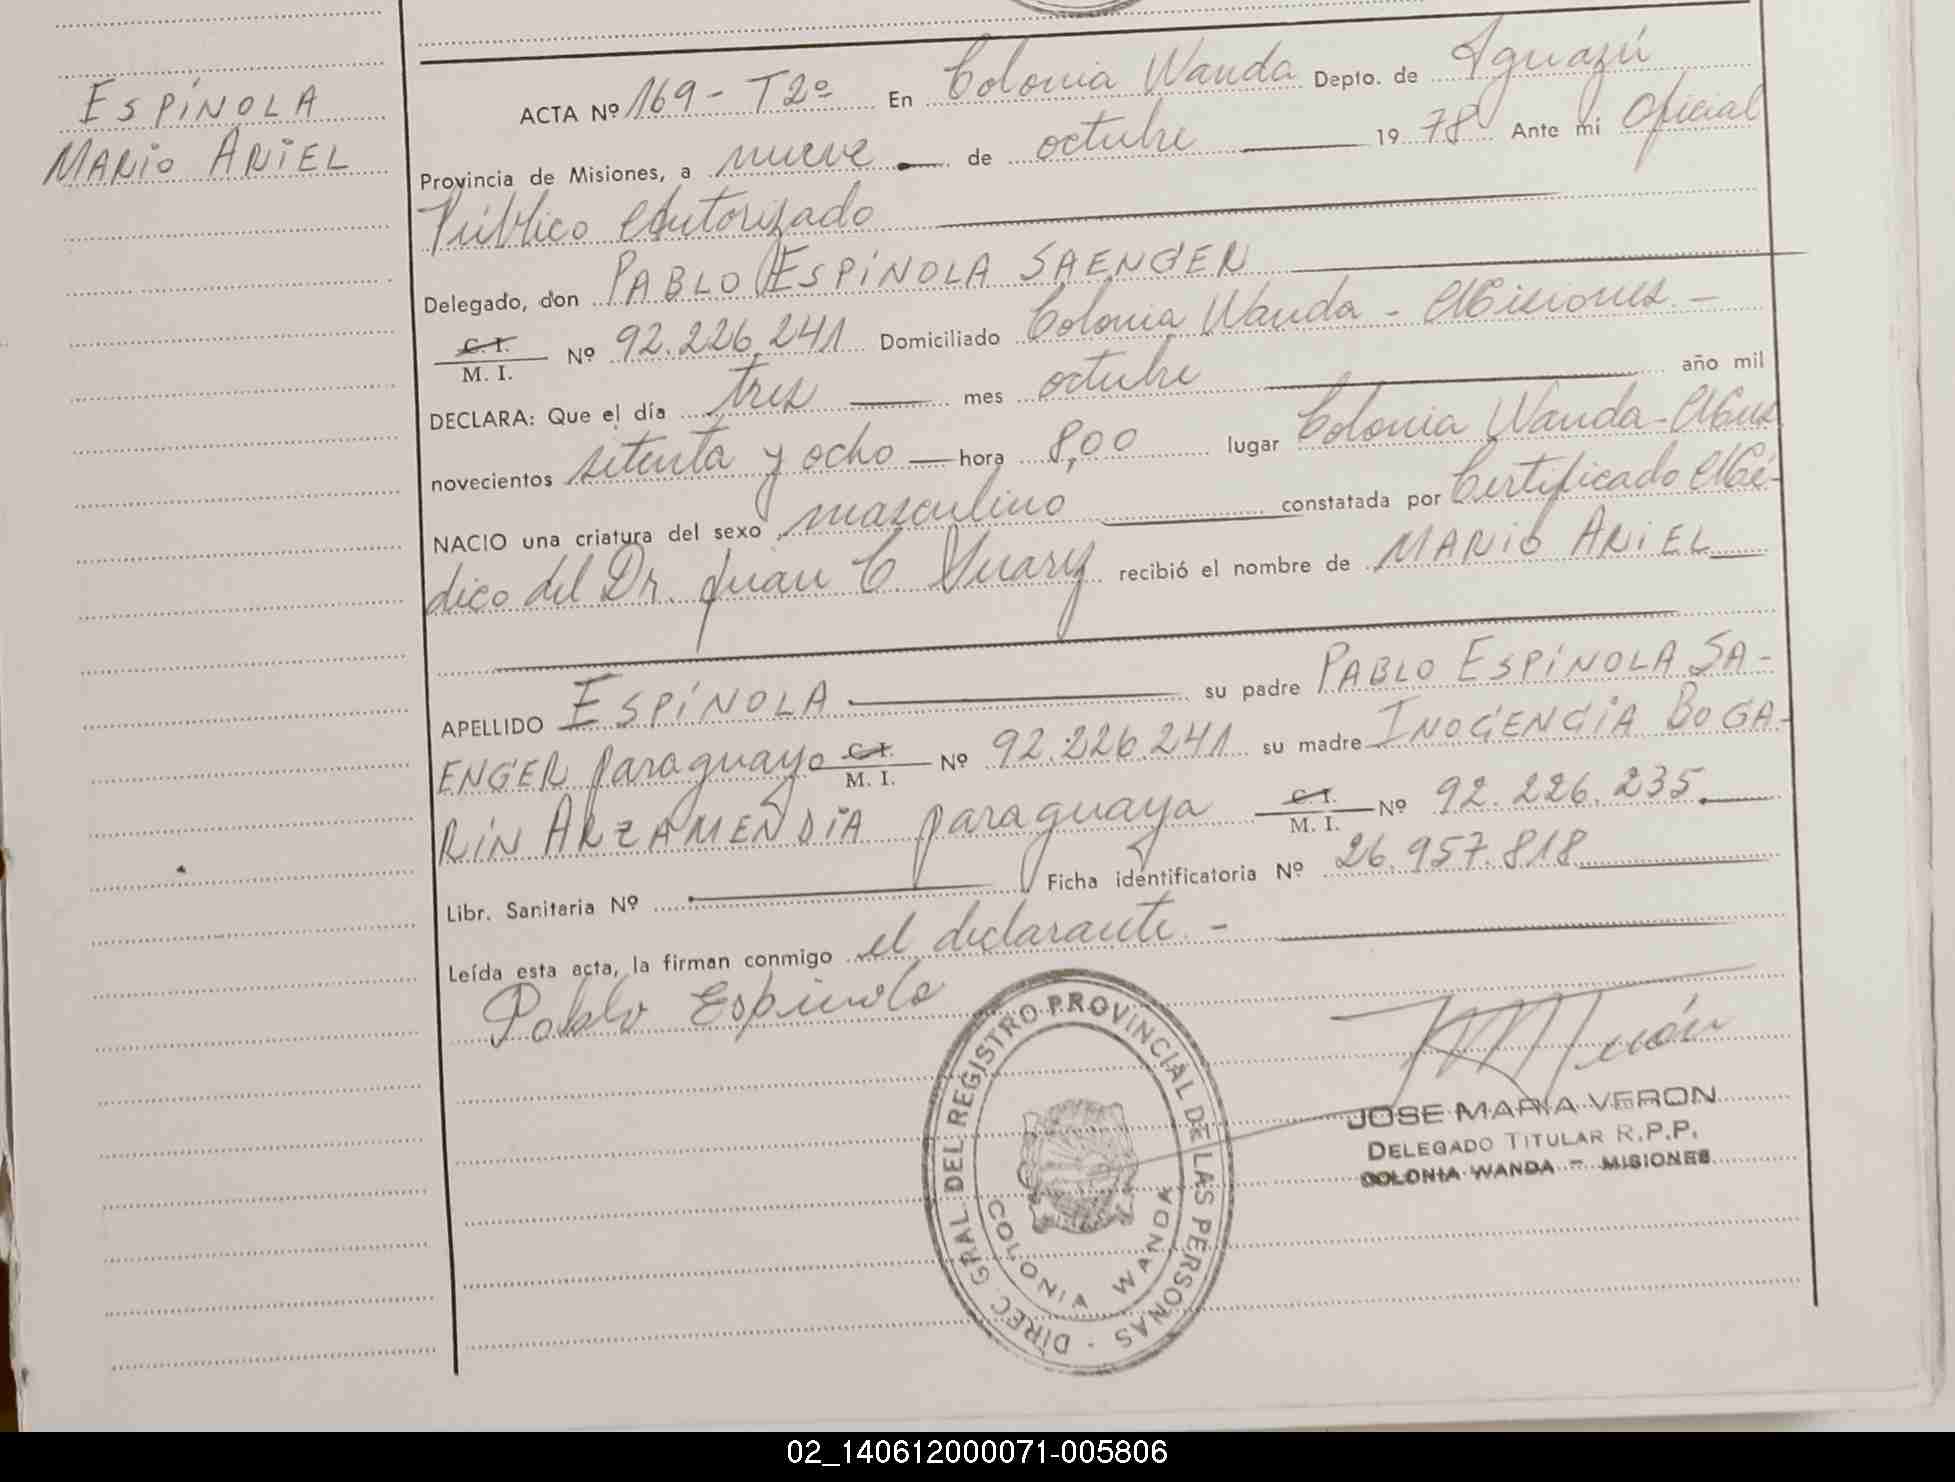 ESPÍNOLA
MARIO ARIEL
ACTA Nº 169 - T2º En Colonia Wanda Depto. de Iguazú
Provincia de Misiones, a nueve de octubre 1978 Ante mi Oficial
Público Autorizado
Delegado, don PABLO ESPÍNOLA SAENGER
C. I.
M. I. Nº 92.226.241 Domiciliado Colonia Wanda - Misiones -
DECLARA: Que el día tres mes octubre año mil
novecientos setenta y ocho hora 8,00 lugar Colonia Wanda - Mnes
NACIO una criatura del sexo masculino constatada por Certificado Mé-
dico del Dr. Juan C recibió el nombre de MARIO ARIEL
APELLIDO ESPÍNOLA su padre PABLO ESPÍNOLA SA-
ENGER paraguayo C. I. M. I. Nº 92.226.241 su madre INOCENCIA BOGA-
RIN ARZAMENDIA paraguaya C. I. M. I. Nº 92.226.235.
Libr. Sanitaria Nº Ficha identificatoria Nº 26.957.818
Leída esta acta, la firman conmigo el declarante. -
Pablo Espinola
DIREC. GRAL DEL REGISTRO PROVINCIAL DE LAS PERSONAS -
COLONIA WANDA
JOSE MARIA VERON
DELEGADO TITULAR R.P.P.
COLONIA WANDA - MISIONES
02_140612000071-005806